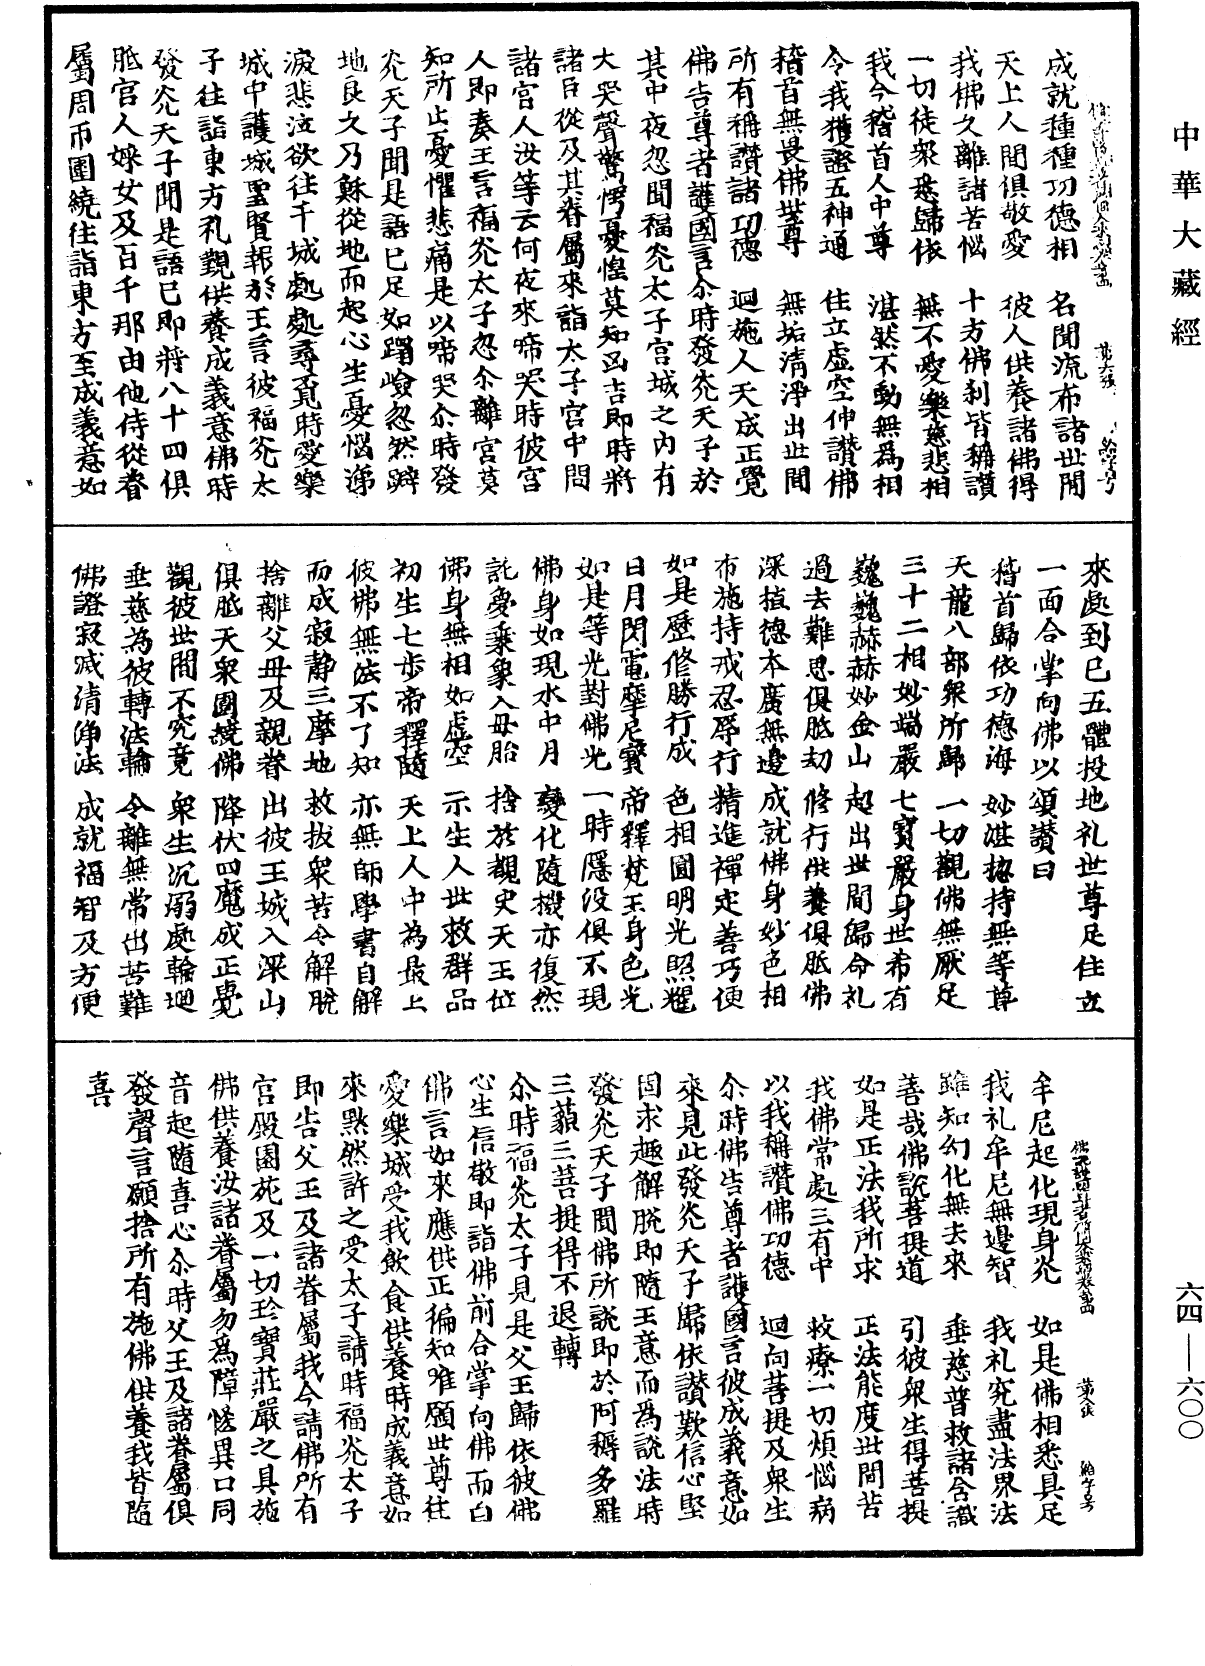 中華大藏經
成就種種功德相　名聞流布諸世間
天上人間俱敬愛　彼人供養諸佛得
我佛久離諸苦惱　十方佛剎皆稱讚
一切徒衆悉歸依　無不愛樂慈悲相
我今稽首人中尊　湛然不動無為相
令我獲證五神通　住立虛空伸讚佛
稽首無畏佛世尊　無垢清淨出世間
所有稱讚諸功德　迴施人天成正覺
佛告尊者護國言尒時發光天子於
其中夜忽聞福光太子宮城之內有
大哭聲驚愕憂惶莫知凶吉即時將
諸臣從及其眷屬來詣太子宮中問
諸宮人汝等云何夜來啼哭時彼宮
人即奏王言福光太子忽尒離宮莫
知所止憂懼悲痛是以啼哭尒時發
光天子聞是語已足如蹈嶮忽然躃
地良久乃穌從地而起心生憂惱涕
淚悲泣欲往千城處處尋覓時愛樂
城中護城聖賢報於王言彼福光太
子往詣東方礼覲供養成義意佛時
發光天子聞是語已即將八十四俱
胝宮人婇女及百千那由他侍從眷
屬周帀圍繞往詣東方至成義意如
來處到已五體投地礼世尊足住立
一面合掌向佛以頌讚曰
稽首歸依功德海　妙湛揔持無等尊
天龍八部衆所歸　一切觀佛無厭足
三十二相妙端嚴　七寶嚴身世希有
巍巍赫赫妙金山　超出世間歸命礼
過去難思俱胝劫　修行供養俱胝佛
深植德本廣無邊　成就佛身妙色相
布施持戒忍辱行　精進禪定善巧便
如是歷修勝行成　色相圓明光照耀
日月閃電摩尼寶　帝釋梵王身色光
如是等光對佛光　一時隱没俱不現
佛身如現水中月　變化隨機亦復然
託憂乘象入母胎　捨於覩史天王位
佛身無相如虛空　示生人世救群品
初生七步帝釋隨　天上人中為最上
彼佛無法不了知　亦無師學書自解
而成寂靜三摩地　救拔衆苦令解脫
捨離父母及親眷　出彼王城入深山
俱胝天衆圍繞佛　降伏四魔成正覺
觀彼世間不究竟　衆生沉溺處輪迴
垂慈為彼轉法輪　令離無常出苦難
佛證寂滅清淨法　成就福智及方便
牟尼起化現身光　如是佛相悉具足
我礼牟尼無邊智　我礼究盡法界法
雖知幻化無去來　垂慈普救諸含識
善哉佛說菩提道　引彼衆生得菩提
如是正法我所求　正法能度世間苦
我佛常處三有中　救療一切煩惱病
以我稱讚佛功德　迴向菩提及衆生
尒時佛告尊者護國言彼成義意如
來見此發光天子歸依讚歎信心堅
固求趣解脫即隨王意而為說法時
發光天子聞佛所說即於阿耨多羅
三藐三菩提得不退轉
尒時福光太子見是父王歸依彼佛
心生信敬即詣佛前合掌向佛而白
佛言如來應供正徧知唯願世尊往
愛樂城受我飲食供養時成義意如
來默然許之受太子請時福光太子
即告父王及諸眷屬我今請佛所有
宮殿園苑及一切珍寶莊嚴之具施
佛供養汝諸眷屬勿為障怪異口同
音起隨喜心尒時父王及諸眷屬俱
發聲言願捨所有施佛供養我皆隨
喜
六四—六〇〇